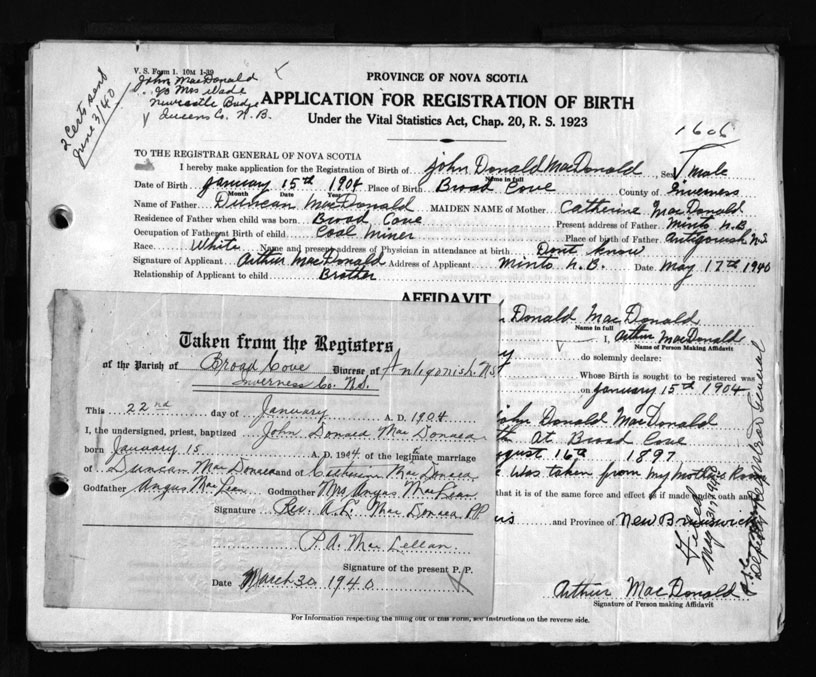 V. S. Form 1. 10M 1-39
John MacDonald
c/o Mrs Wade
Newcastle Bridge
Queens Co. N.B.
2 Certs sent
June 3/40
PROVINCE OF NOVA SCOTIA
APPLICATION FOR REGISTRATION OF BIRTH
Under the Vital Statistics Act, Chap. 20, R. S. 1923
1606
TO THE REGISTRAR GENERAL OF NOVA SCOTIA
I hereby make application for the Registration of Birth of John Donald MacDonald, Sex male
Name in full
Date of Birth January 15th 1904 Place of Birth Broad Cove County of Inverness
Month Date Year
Name of Father Duncan MacDonald MAIDEN NAME of Mother Catherine MacDonald
Residence of Father when child was born Broad Cove Present address of Father Minto N.B.
Occupation of Father at Birth of Child Coal Miner Place of birth of Father Antigonish N.S.
Race White Name and present address of Physician in attendance at birth Dont know
Signature of Applicant Arthur MacDonald Address of Applicant Minto N.B. Date May 17th 1940
Relationship of Applicant to child Brother
AFFIDAVIT
Donald MacDonald
Name in full
I, Arthur MacDonald
Name of Person Making Affidavit
do solemnly declare:
Whose Birth is sought to be registered was
on January 15th 1904
John Donald MacDonald
At Broad Cove
August 16th 1897
was taken from my Mothers
that it is of the same force and effect as if made under oath and
and Province of New Brunswick
Filed May 31st 1940
Deputy Registrar General
Arthur MacDonald
Signature of Person making Affidavit
For information respecting the filling out of this Form, see instructions on the reverse side.
Taken from the Registers
of the Parish of Broad Cove Diocese of Antigonish N.S.
Inverness Co. N.S.
This 22nd day of January A. D. 1904
I, the undersigned, priest, baptized John Donald MacDonald
born January 15 A. D. 1904 of the legitimate marriage
of Duncan MacDonald and of Catherine MacDonald
Godfather Angus MacLean Godmother Mrs Angus MacLean
Signature Rev. A. L. MacDonald P.P.
P. A. MacLellan
Signature of the present P./P.
Date March 30 1940